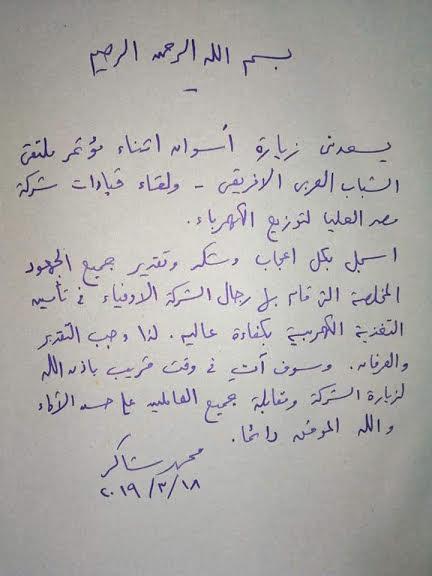 بسم الله الرحمن الرحيم
يسعدنى زيارة أسوان اثناء مؤتمر ملتقى
الشباب العربى الافريقى - ولقاء قيادات شركة
مصر العليا لتوزيع الكهرباء.
اسجل بكل اعجاب وشكر وتقدير جميع الجهود
المخلصة التى قام بها رجال الشركة الاوفياء فى تأمين
التغذية الكهربية بكفاءة عاليه. لذا وجب التقدير
والعرفان. وسوف آتى فى وقت قريب باذن الله
لزيارة الشركة ومقابلة جميع العاملين على حسن الأداء
والله الموفق دائما.
محمد شاكر
٢٠١٩/٣/١٨